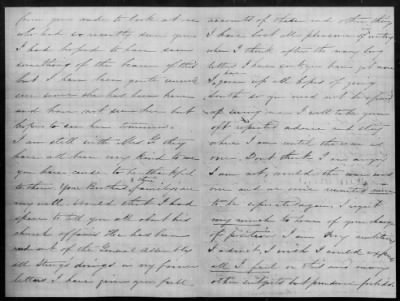 from your aide to look at me
who had so recently seen you
I had hoped to have seen
something of the home of this
but I have been quite unwell
ever since she has been here
and have not seen her but
hope to see her tomorrow.
I am still with Mrs G. they
have all been very kind to me
you have cause to be thankful
to them Your Brothers families are
very well. Would that I had
space to tell you all about his
church affairs He has been
out of the General Assembly
all things doings in my former
letters I have given you full
accounts of these and other things
I have lost all pleasure in writing
when I think after the many long
letters I have sent you have got none
I have given up all hopes of going
South so you need not be afraid
of seeing me I will take your
oft repeated advice and stay
where I am until the war is
over. Don't think I am angry
I am not, would the war were
over and we once reunited never
to be separated again. I regret
very much to learn of your change
of position. I am very ambitious
I admit, I wish I could express
all I feel on this and many
other subjects but prudence forbids.